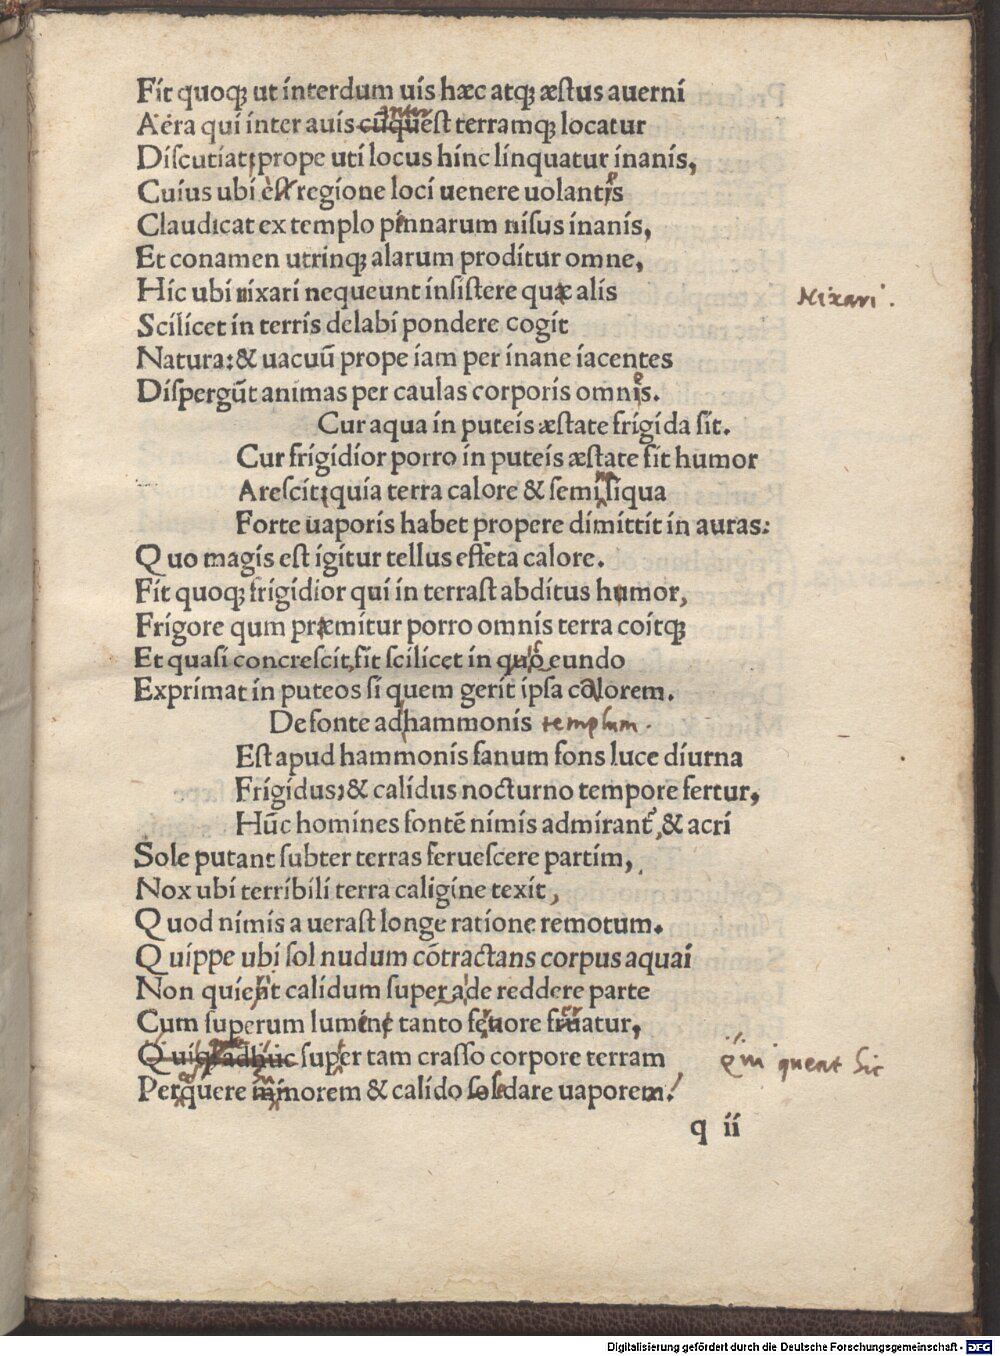 Fit quoq; ut interdum uis hæc atq; æstus auerni
Aëra qui inter auis cūquest terramq; locatur
Discutiat; prope uti locus hinc linquatur inanis,
Cuius ubi est regione loci uenere uolantis
Claudicat ex templo pinnarum nisus inanis,
Et conamen utrinq; alarum proditur omne,
Hic ubi nixari nequeunt insistere quæ alis
Nixari.
Scilicet in terris delabi pondere cogit
Natura: & uacuū prope iam per inane iacentes
Dispergūt animas per caulas corporis omnis.
Cur aqua in puteis æstate frigida sit.
Cur frigidior porro in puteis æstate fit humor
Arescit; quia terra calore & semi siqua
Forte uaporis habet propere dimittit in auras:
Quo magis est igitur tellus effeta calore.
Fit quoq; frigidior qui in terrast abditus humor,
Frigore qum præmitur porro omnis terra coitq;
Et quasi concrescit, fit scilicet in quo eundo
Exprimat in puteos si quem gerit ipsa calorem.
De fonte ad hammonis templum.
Est apud hammonis fanum fons luce diurna
Frigidus; & calidus nocturno tempore fertur,
Hūc homines fontē nimis admirant, & acri
Sole putant subter terras feruescere partim,
Nox ubi terribili terra caligine texit,
Quod nimis a uerast longe ratione remotum.
Quippe ubi sol nudum cōtractans corpus aquai
Non quient calidum supera de reddere parte
Cum superum lumine tanto feruore fruatur,
Quiq; adhuc super tam crasso corpore terram
Qui queat hic
Perquere minorem & calido soldare uaporem!
q ii
Digitalisierung gefördert durch die Deutsche Forschungsgemeinschaft - DFG